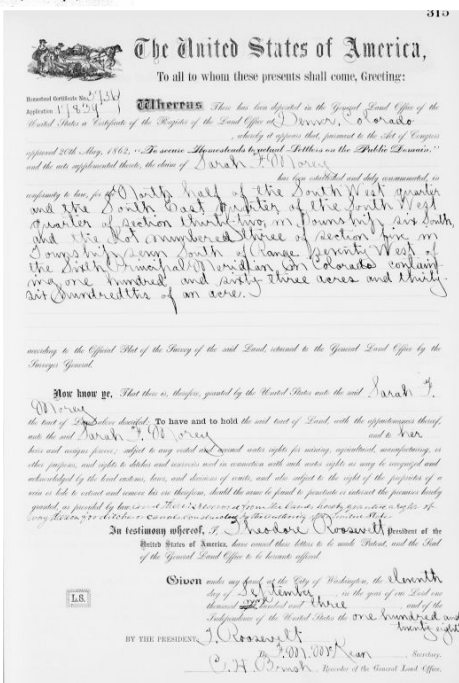 315
The United States of America,
To all to whom these presents shall come, Greeting:
Homestead Certificate No.
Application
Whereas There has been deposited in the General Land Office of the
United States a Certificate of the Register of the Land Office at Denver, Colorado
, whereby it appears that, pursuant to the Act of Congress
approved 20th May, 1862, "To secure Homesteads to actual Settlers on the Public Domain,"
and the acts supplemental thereto, the claim of Sarah F. Morey
has been established and duly consummated, in
conformity to law, for the North half of the South West quarter
and the South East quarter of the South West
quarter of section thirty-two, in Township six South,
and the Lot numbered three of section five, in
Township seven South of Range seventy West of
the Sixth Principal Meridian, in Colorado contain-
ing one hundred and sixty three acres and thirty-
six hundredths of an acre.
according to the Official Plat of the Survey of the said Land, returned to the General Land Office by the
Surveyor General.
Now know ye, That there is, therefore, granted by the United States unto the said Sarah F.
Morey
the tract of Land above described; To have and to hold the said tract of Land, with the appurtenances thereof,
unto the said Sarah F. Morey and to her
heirs and assigns forever; subject to any vested and accrued water rights for mining, agricultural, manufacturing, or
other purposes, and rights to ditches and reservoirs used in connection with such water rights as may be recognized and
acknowledged by the local customs, laws, and decisions of courts, and also subject to the right of the proprietor of a
vein or lode to extract and remove his ore therefrom, should the same be found to penetrate or intersect the premises hereby
granted, as provided by law; and there is reserved from the lands hereby granted a right of
way thereon for ditches or canals constructed by the authority of the United States.
In testimony whereof, I, Theodore Roosevelt President of the
United States of America, have caused these letters to be made Patent, and the Seal
of the General Land Office to be hereunto affixed.
Given under my hand, at the City of Washington, the eleventh
day of September, in the year of our Lord one
thousand nine hundred and three, and of the
Independence of the United States the one hundred and
twenty eighth
L.S.
BY THE PRESIDENT: T. Roosevelt
By F. M. McKean Secretary.
C. H. Brush Recorder of the General Land Office.